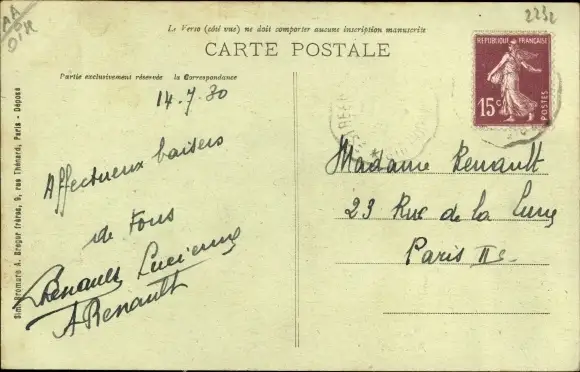 2232
AA
Le Verso (côté vue) ne doit comporter aucune inscription manuscrite
CARTE POSTALE
Partie exclusivement réservée à la Correspondance
14.7.30
Affectueux baisers
de tous
Renault Lucienne
A Renault
RÉPUBLIQUE FRANÇAISE
15c
POSTES
Madame Renault
23 Rue de la Lune
Paris IIe
Simi-Bromure A. Breger frères, 9, rue Thénard, Paris - Déposé